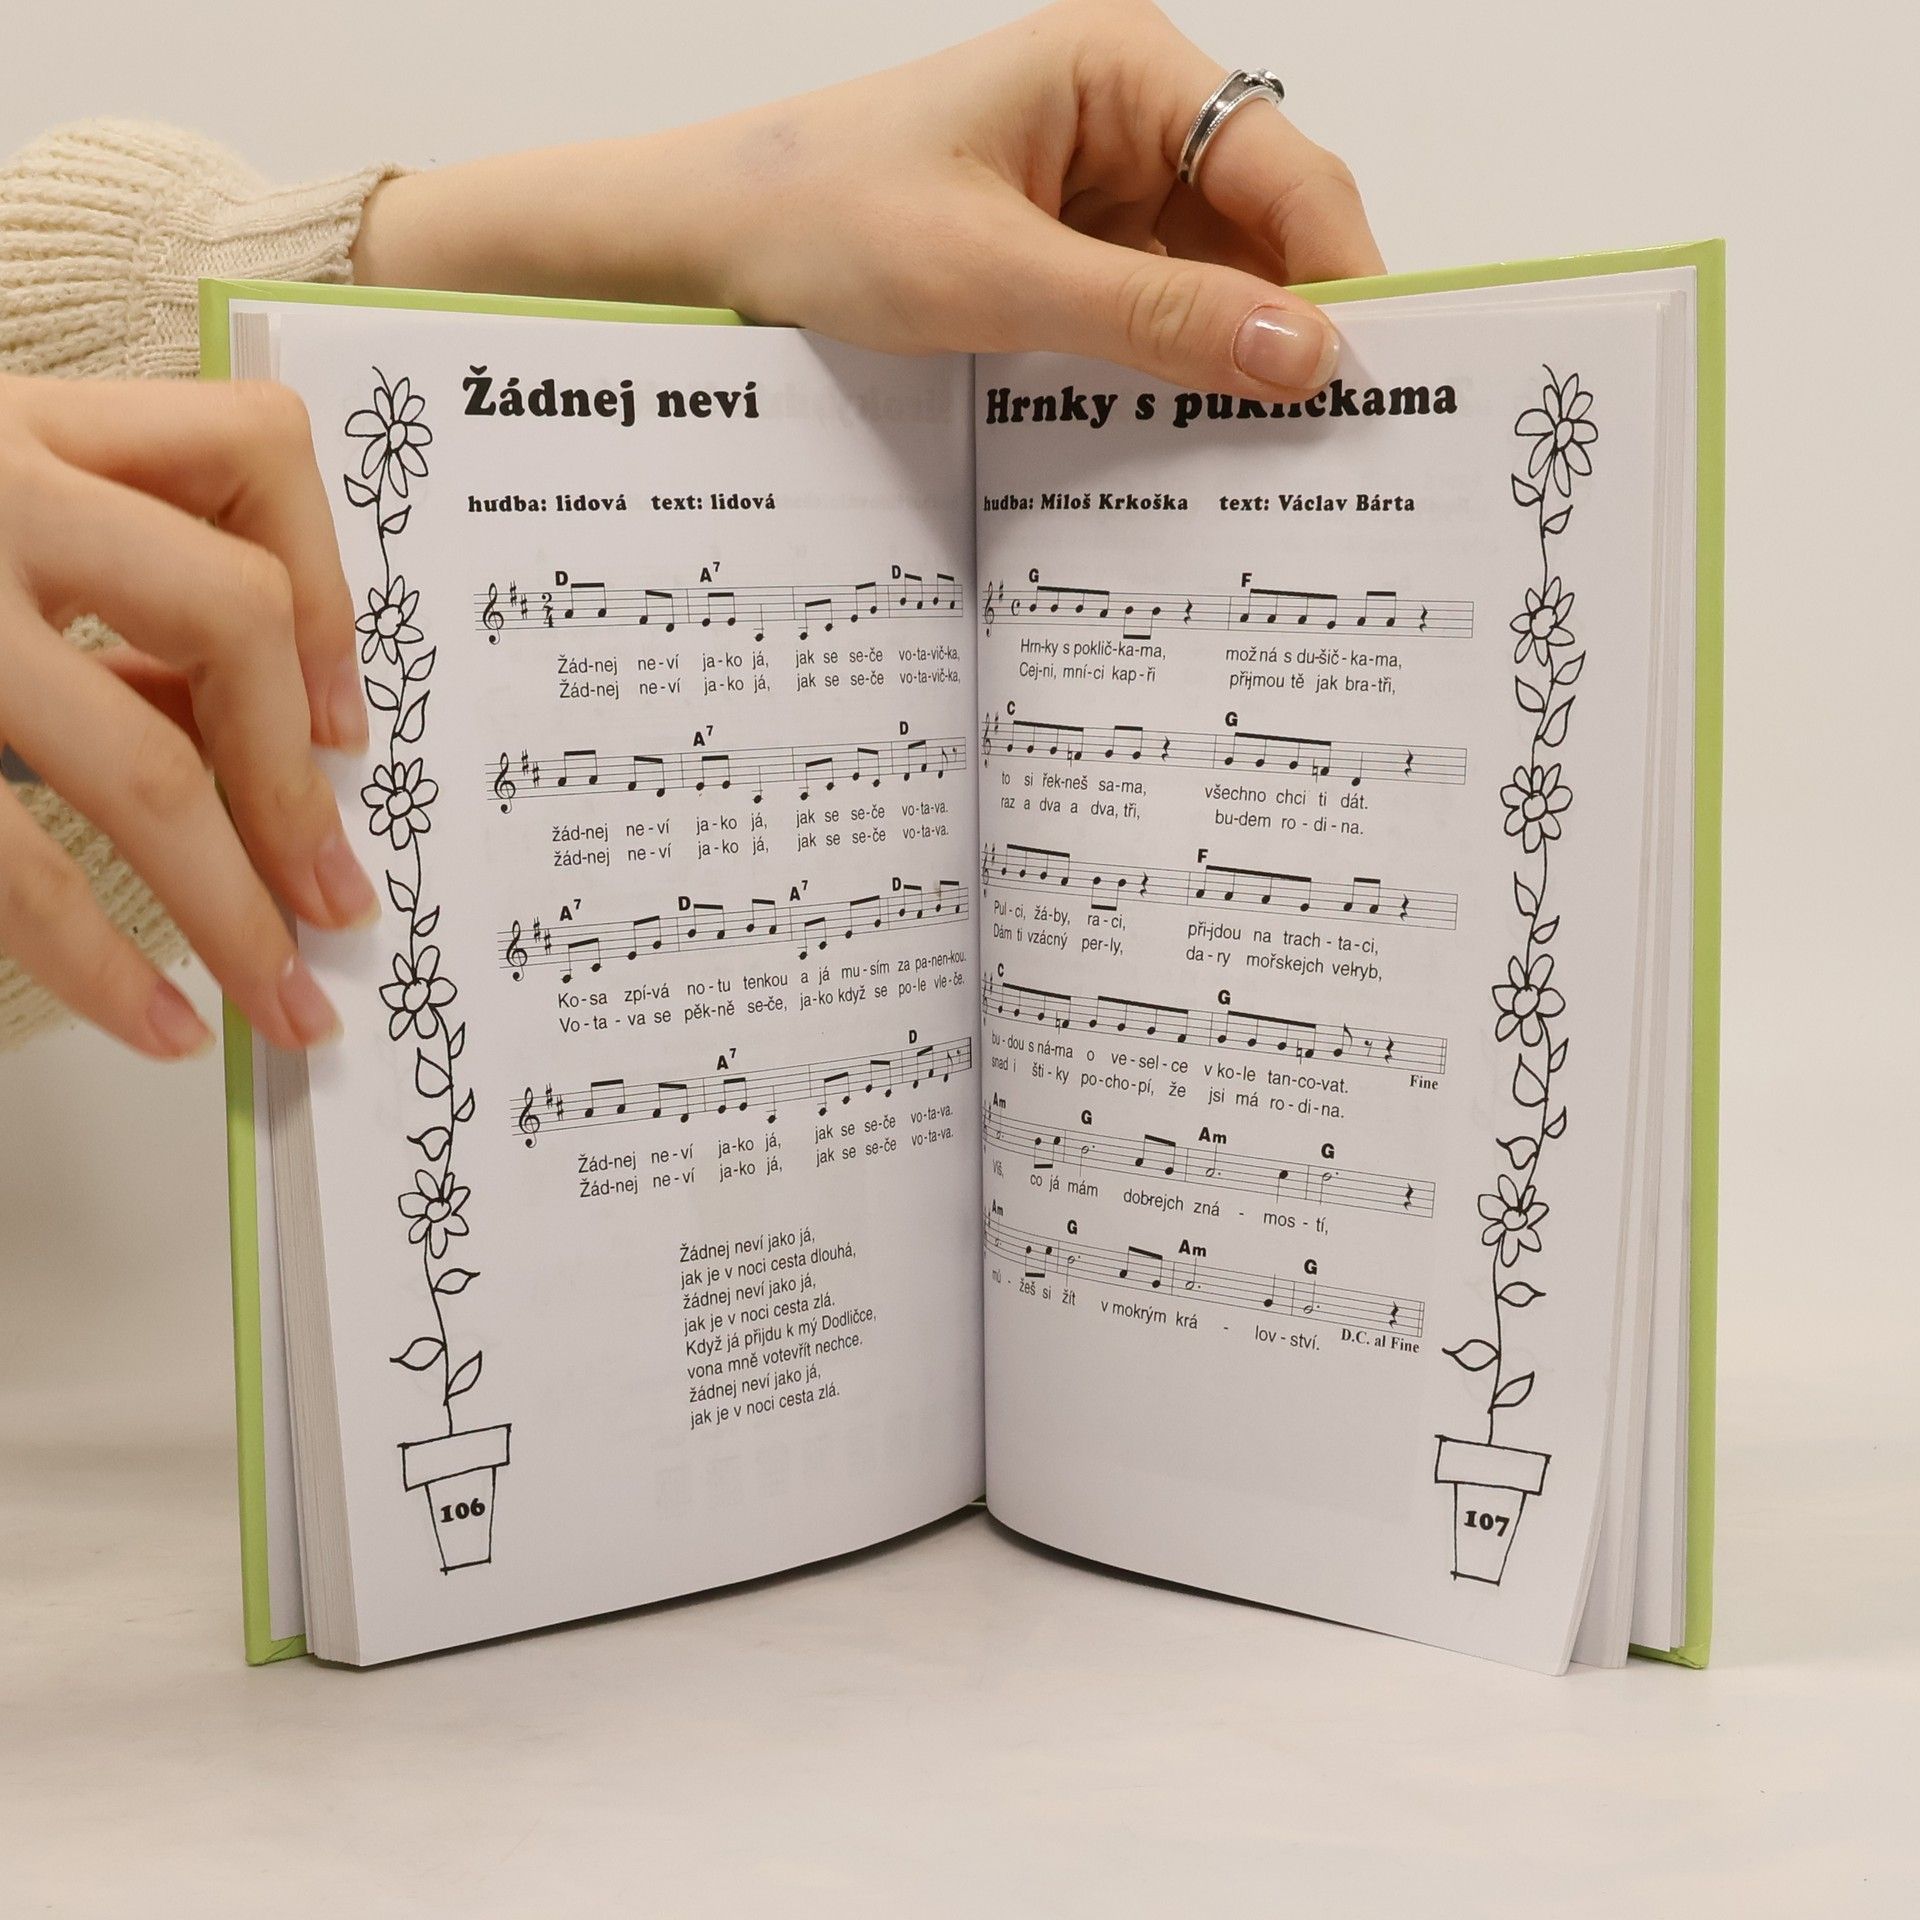 Žádnej neví
hudba: lidová text: lidová
D A7 D
Žád-nej ne-ví ja-ko já, jak se se-če vo-ta-vič-ka,
Žád-nej ne-ví ja-ko já, jak se se-če vo-ta-vič-ka,
A7 D
žád-nej ne-ví ja-ko já, jak se se-če vo-ta-va.
žád-nej ne-ví ja-ko já, jak se se-če vo-ta-va.
A7 D A7 D
Ko-sa zpí-vá no-tu tenkou a já mu-sím za pa-nen-kou.
Vo-ta-va se pěk-ně se-če, ja-ko když se po-le vle-če.
A7 D
Žád-nej ne-ví ja-ko já, jak se se-če vo-ta-va.
Žád-nej ne-ví ja-ko já, jak se se-če vo-ta-va.
Žádnej neví jako já,
jak je v noci cesta dlouhá,
žádnej neví jako já,
jak je v noci cesta zlá.
Když já přijdu k mý Dodličce,
vona mně votevřít nechce.
žádnej neví jako já,
jak je v noci cesta zlá.
106
Hrnky s
hudba: Miloš Krkoška text: Václav Bárta
G F
Hrn-ky s poklič-ka-ma, možná s du-šič-ka-ma,
Cej-ni, mní-ci kap-ři přijmou tě jak bra-tři,
C G
to si řek-neš sa-ma, všechno chci ti dát.
raz a dva a dva, tři, bu-dem ro-di-na.
F
Pul-ci, žá-by, ra-ci, při-jdou na trach-ta-ci,
Dám ti vzácný per-ly, da-ry mořskejch velryb,
C G
bu-dou s ná-ma o ve-sel-ce v ko-le tan-co-vat. Fine
snad i šti-ky po-cho-pí, že jsi má ro-di-na.
Am G Am G
Víš, co já mám dobrejch zná - mos-tí,
Am G Am G
mů-žeš si žít v mokrým krá - lov-ství. D.C. al Fine
107